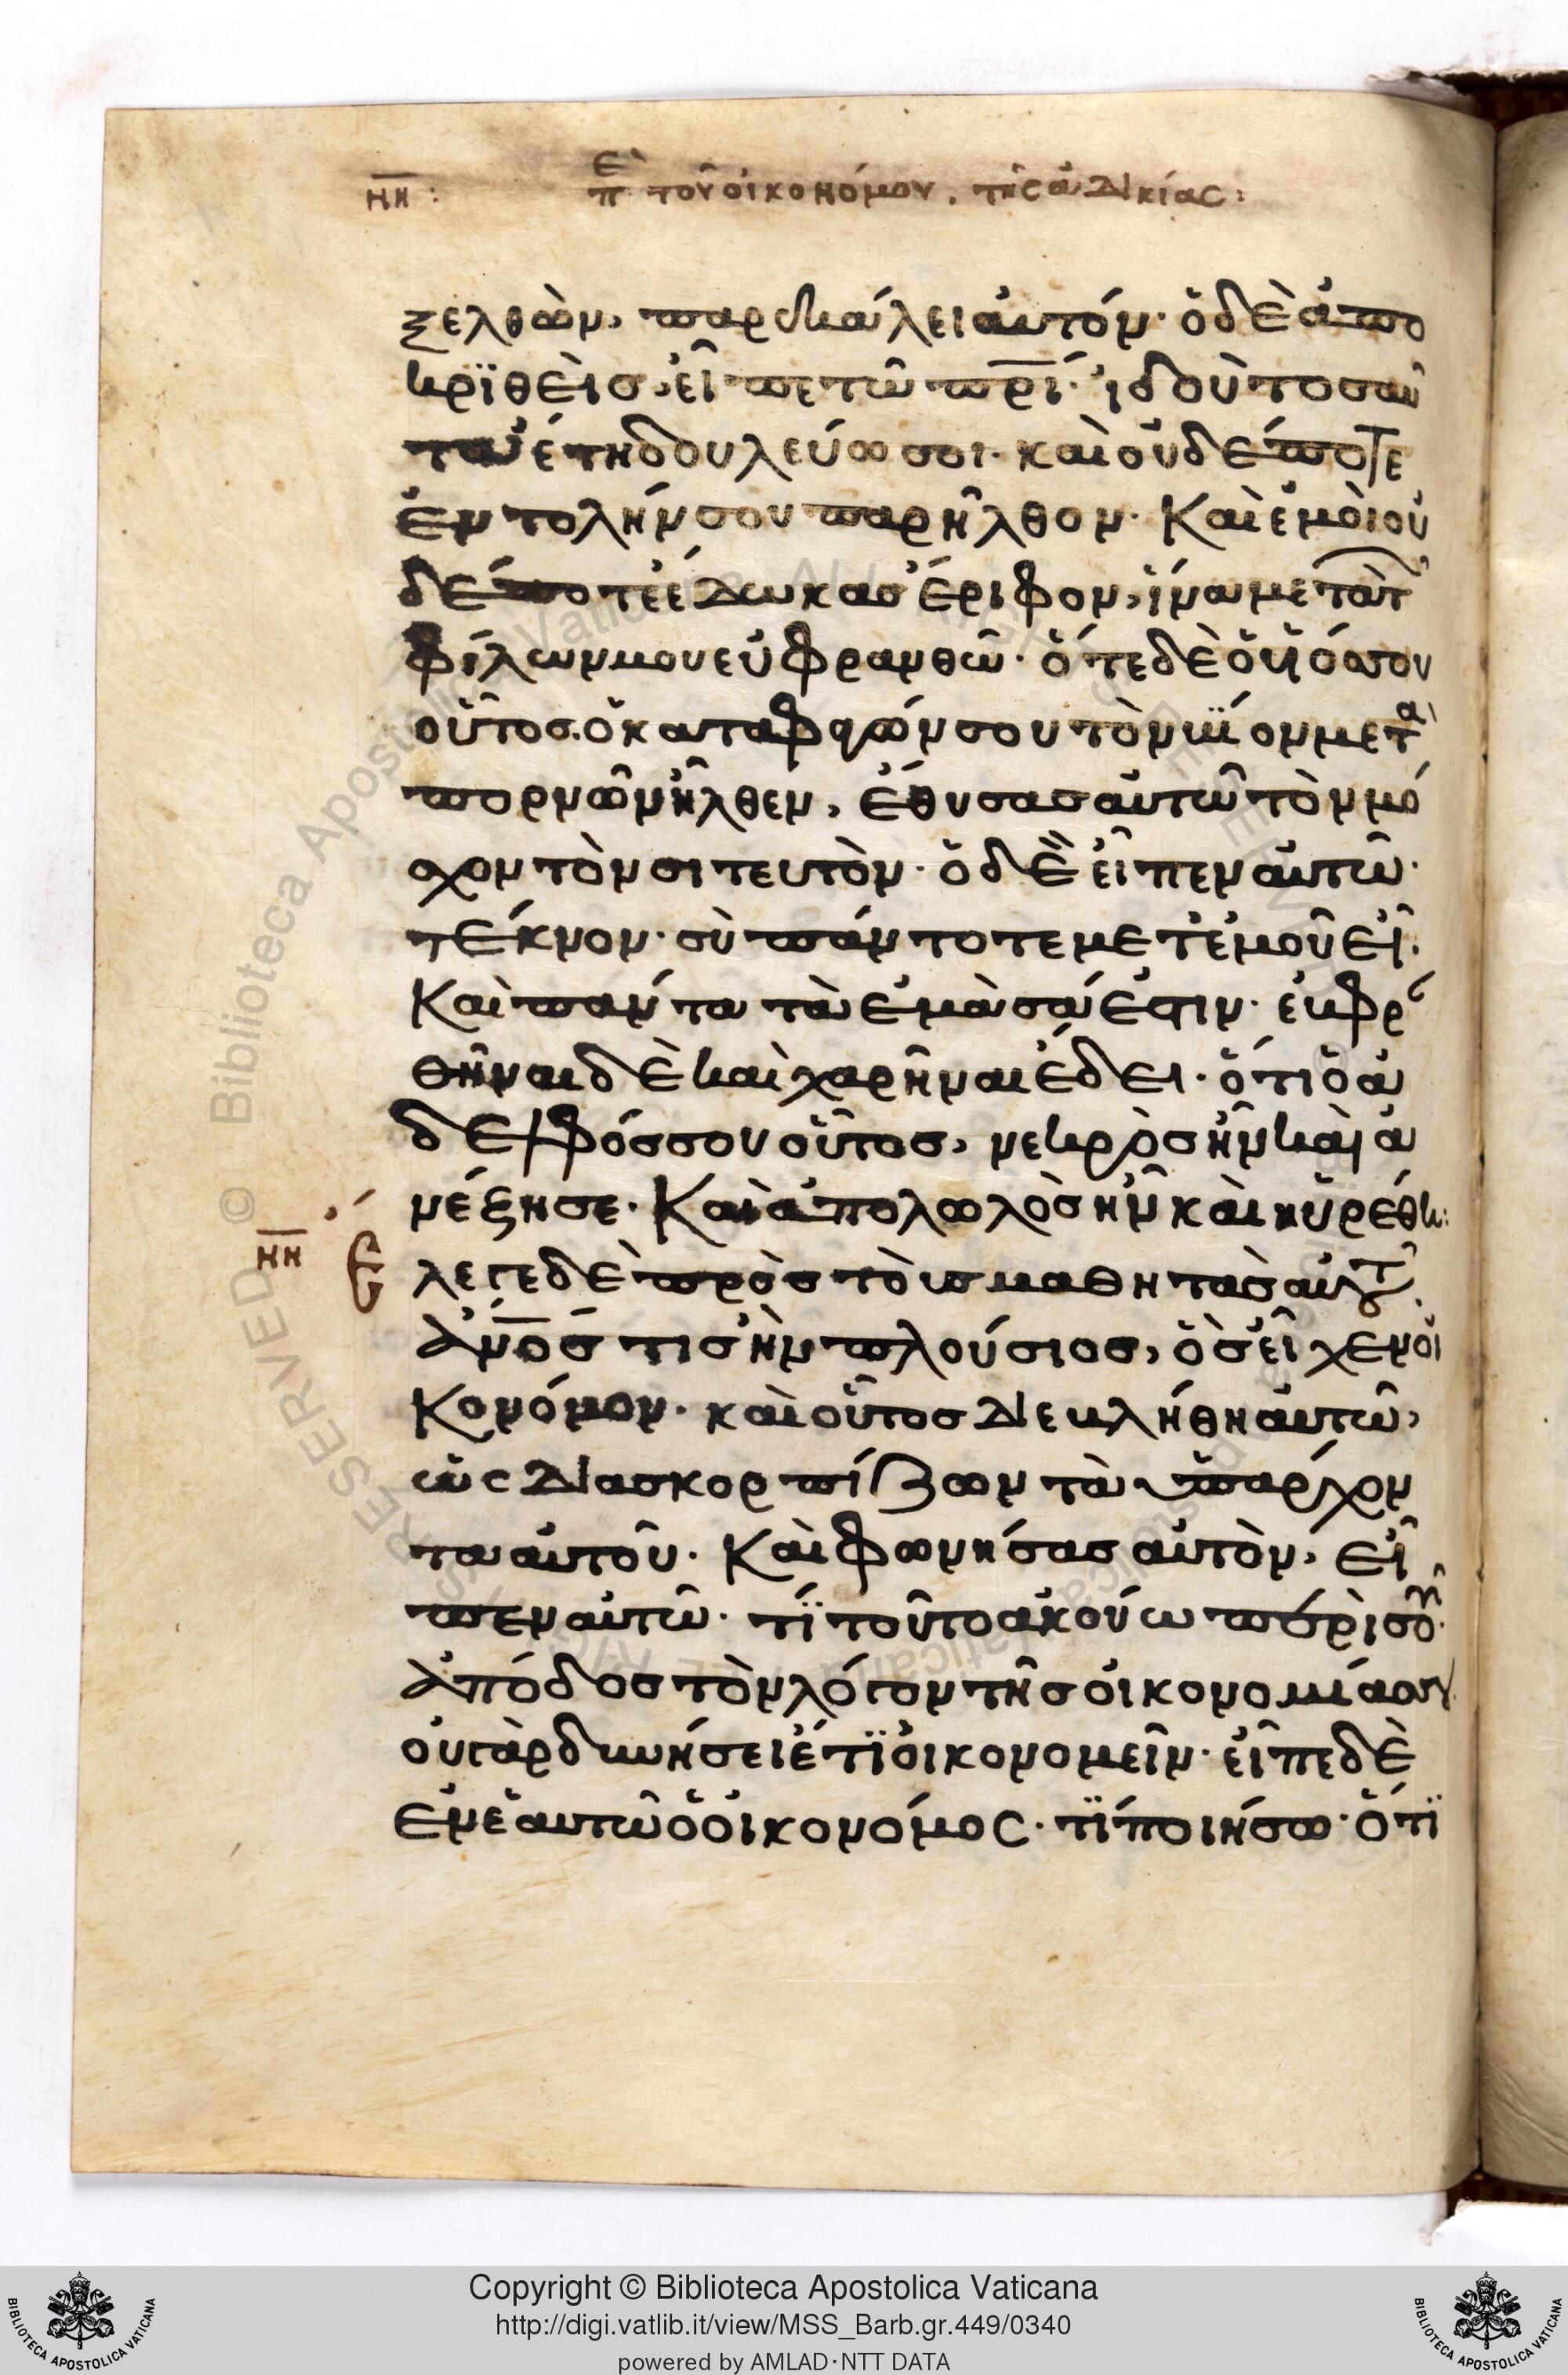 νη : ε π τοῦ οἰκονόμου. τῆς ἀδικίας :
ξελθὼν, παρεκάλει αὐτόν· ὁ δὲ ἀπο
κριθεὶς, εἶπε τῶ πρι· ἰδοὺ τοσαῦ
τα ἔτη δουλεύω σοι· καὶ οὐδέποτε
ἐντολήν σου παρῆλθον· Καὶ ἐμοὶ οὐ
δέποτε ἔδωκας ἔριφον, ἵνα μετὰ τ
φίλων μου εὐφρανθῶ· ὅτε δὲ ὁ υἱός σου
οὗτος. ὁ καταφαγών σου τὸν βίον μετὰ
πορνῶν ἦλθεν, ἔθυσας αὐτῶ τὸν μό
σχον τὸν σιτευτὸν· ὁ δὲ εἶπεν αὐτῶ·
τέκνον· σὺ πάντοτε μετ' ἐμοῦ εἶ.
Καὶ πάντα τὰ ἐμὰ σά ἐστιν· εὐφρ
θῆναι δὲ καὶ χαρῆναι ἔδει· ὅτι ὁ ἀ
δελφός σου οὗτος, νεκρὸς ἦν καὶ ἀ
νέζησε· Καὶ ἀπολωλὸς ἦν καὶ ηὑρέθη:
νη Ἔλεγε δὲ πρὸς τοὺς μαθητὰς αὐτοῦ.
Ἀνός τις ἦν πλούσιος, ὃς εἶχεν οἰ
Κονόμον· καὶ οὗτος διεβλήθη αὐτῶ,
ὡς διασκορπίζων τὰ ὑπάρχον
τα αὐτοῦ· Καὶ φωνήσας αὐτὸν, εἶ
πεν αὐτῶ· τί τοῦτο ἀκούω περὶ σοῦ·
Ἀπόδος τὸν λόγον τῆς οἰκονομίας σου
οὐ γὰρ δυνήσει ἔτι οἰκονομεῖν· εἶπε δὲ
ἐν ἑαυτῶ ὁ οἰκονόμος· τί ποιήσω· ὅτι
Copyright © Biblioteca Apostolica Vaticana
http://digi.vatlib.it/view/MSS_Barb.gr.449/0340
powered by AMLAD·NTT DATA